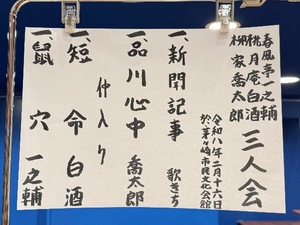 春風亭一之輔
桃月庵白酒
柳家喬太郎
三人会
令和八年二月十六日
於茅ヶ崎市民文化会館
一、新聞記事 歌きち
一、品川心中 喬太郎
仲入り
一、短命 白酒
一、鼠穴 一之輔